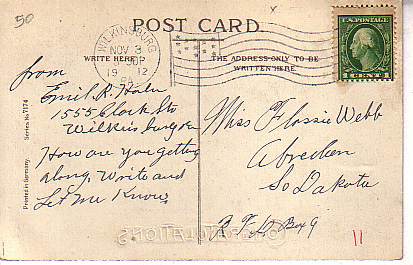 50
x
POST CARD.
WILKINSBURG
NOV 3
19 12
PA.
U.S. POSTAGE
1 CENT 1
WRITE HERE
THE ADDRESS ONLY TO BE
WRITTEN HERE.
from
Emil R.
1555 Clark St
Wilkinsburg Pa
How are you getting
along. Write and
Let Me Know
Miss Flossie Webb
Aberdeen
So Dakota
R F D Box 9
11
Printed in Germany.
Series No. 1174